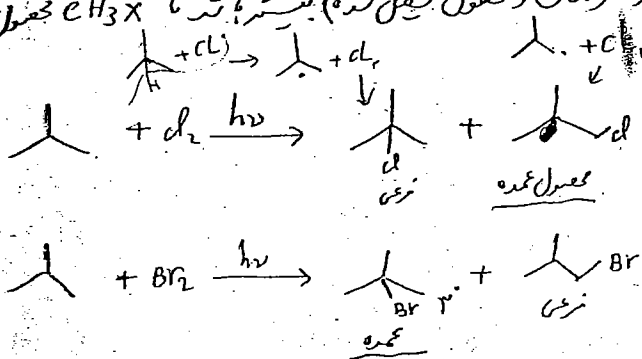 محصول CH3X
+ Cl → + Cl₂ + Cl
+ Cl₂ hν → Cl + Cl
فرعی محصول عمده
+ Br₂ hν → Br ۳° + Br
عمده فرعی